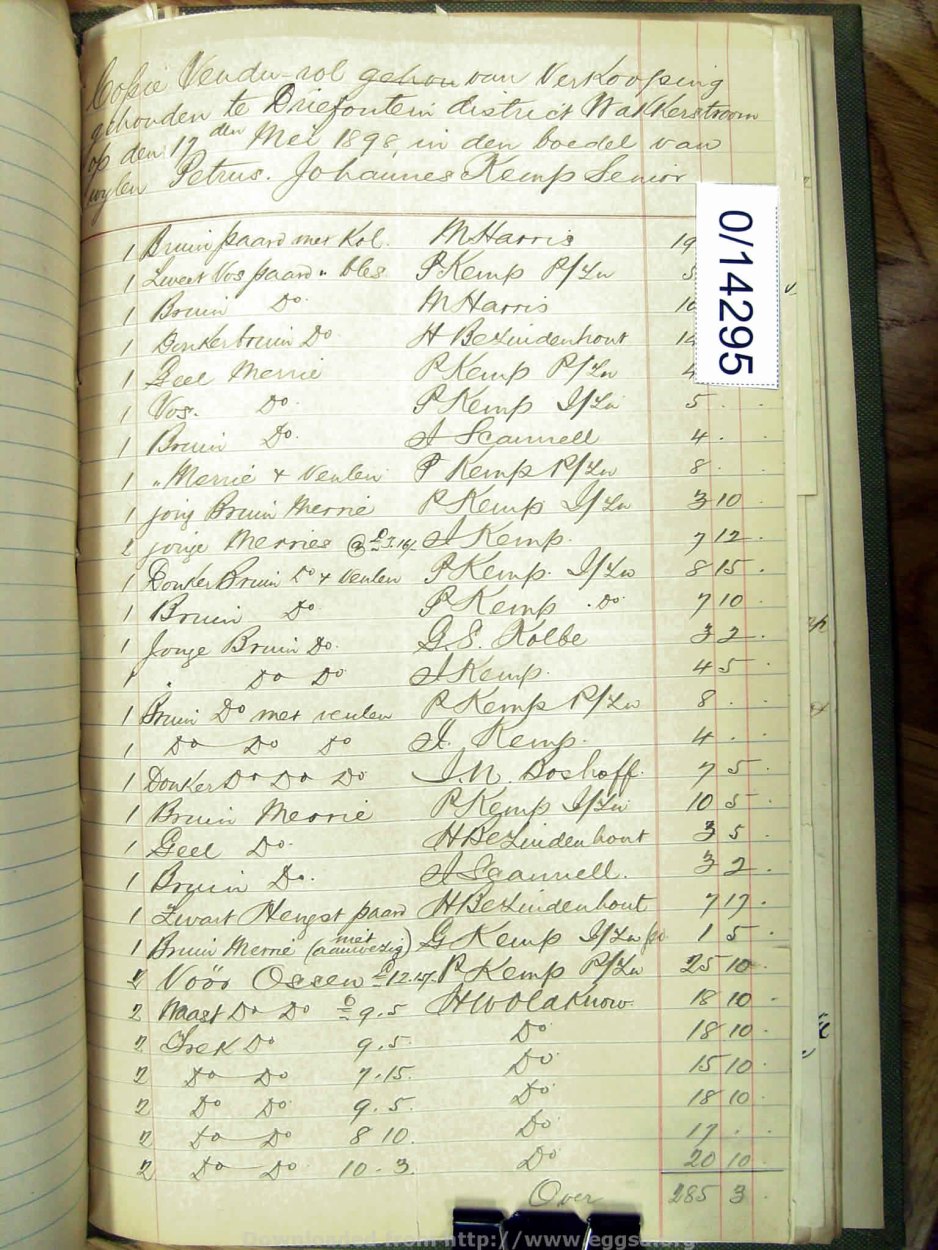 Copie Vendu-rol gehou van Verkooping
gehouden te Driefontein district Wakkerstroom
op den 17 den Mei 1898, in den boedel van
wylen Petrus. Johannes Kemp Senior
0/14295
1 Bruin paard met Kol. M Harris 19
1 Zweet Vos paard " bles P Kemp P/Zn 5
1 Bruin Do. M Harris 10
1 Donkerbruin Do H Bezuidenhout 14
1 Geel Merrie P Kemp P/Zn 4
1 Vos. Do. P Kemp I/Zn 5 . .
1 Bruin Do. A Scannell 4 . .
1 " Merrie & Veulen P Kemp P/Zn 8 . .
1 jong Bruin Merrie P Kemp I/Zn 3 10 .
2 jonge Merries @ £3.16/. A Kemp. 7 12 .
1 Donker Bruin Do & Veulen P Kemp. I/Zn 8 15 .
1 Bruin Do P Kemp . Do 7 10 .
1 Jonge Bruin Do. G.S. Kolbe 3 2 .
1 " Do Do A Kemp. 4 5 .
1 Bruin Do met veulen P Kemp P/Zn 8 . .
1 Do Do Do A. Kemp. 4 . .
1 Donker Do Do Do J.N. Boshoff. 7 5 .
1 Bruin Merrie P Kemp I/Zn 10 5 .
1 Geel Do. H Bezuidenhout 3 5 .
1 Bruin Do. A Scannell. 3 2 .
1 Zwart Hengst paard H Bezuidenhout 7 17 .
1 Bruin Merrie (niet aanwezig) G Kemp I/Zn 1 5 .
2 Vöör Ossen £12.15/. P Kemp P/Zn 25 10 .
2 Naast Do Do £ 9.5 H W Oldknow. 18 10 .
2 Trek Do 9.5 Do 18 10 .
2 Do Do 7.15. Do 15 10 .
2 Do Do 9.5. Do 18 10 .
2 Do Do 8 10. Do 17 . .
2 Do Do 10.3. Do 20 10 .
Over 285 3 .
Downloaded from http://www.eggsa.org